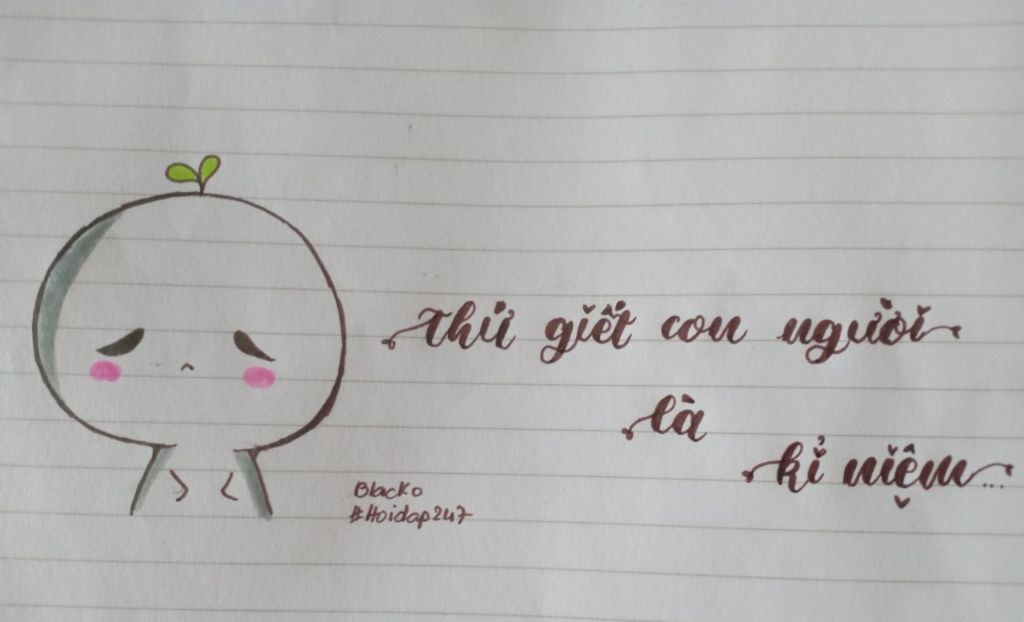 Thứ giết con người
là
kỉ niệm...
Blacko
#Hoidap247